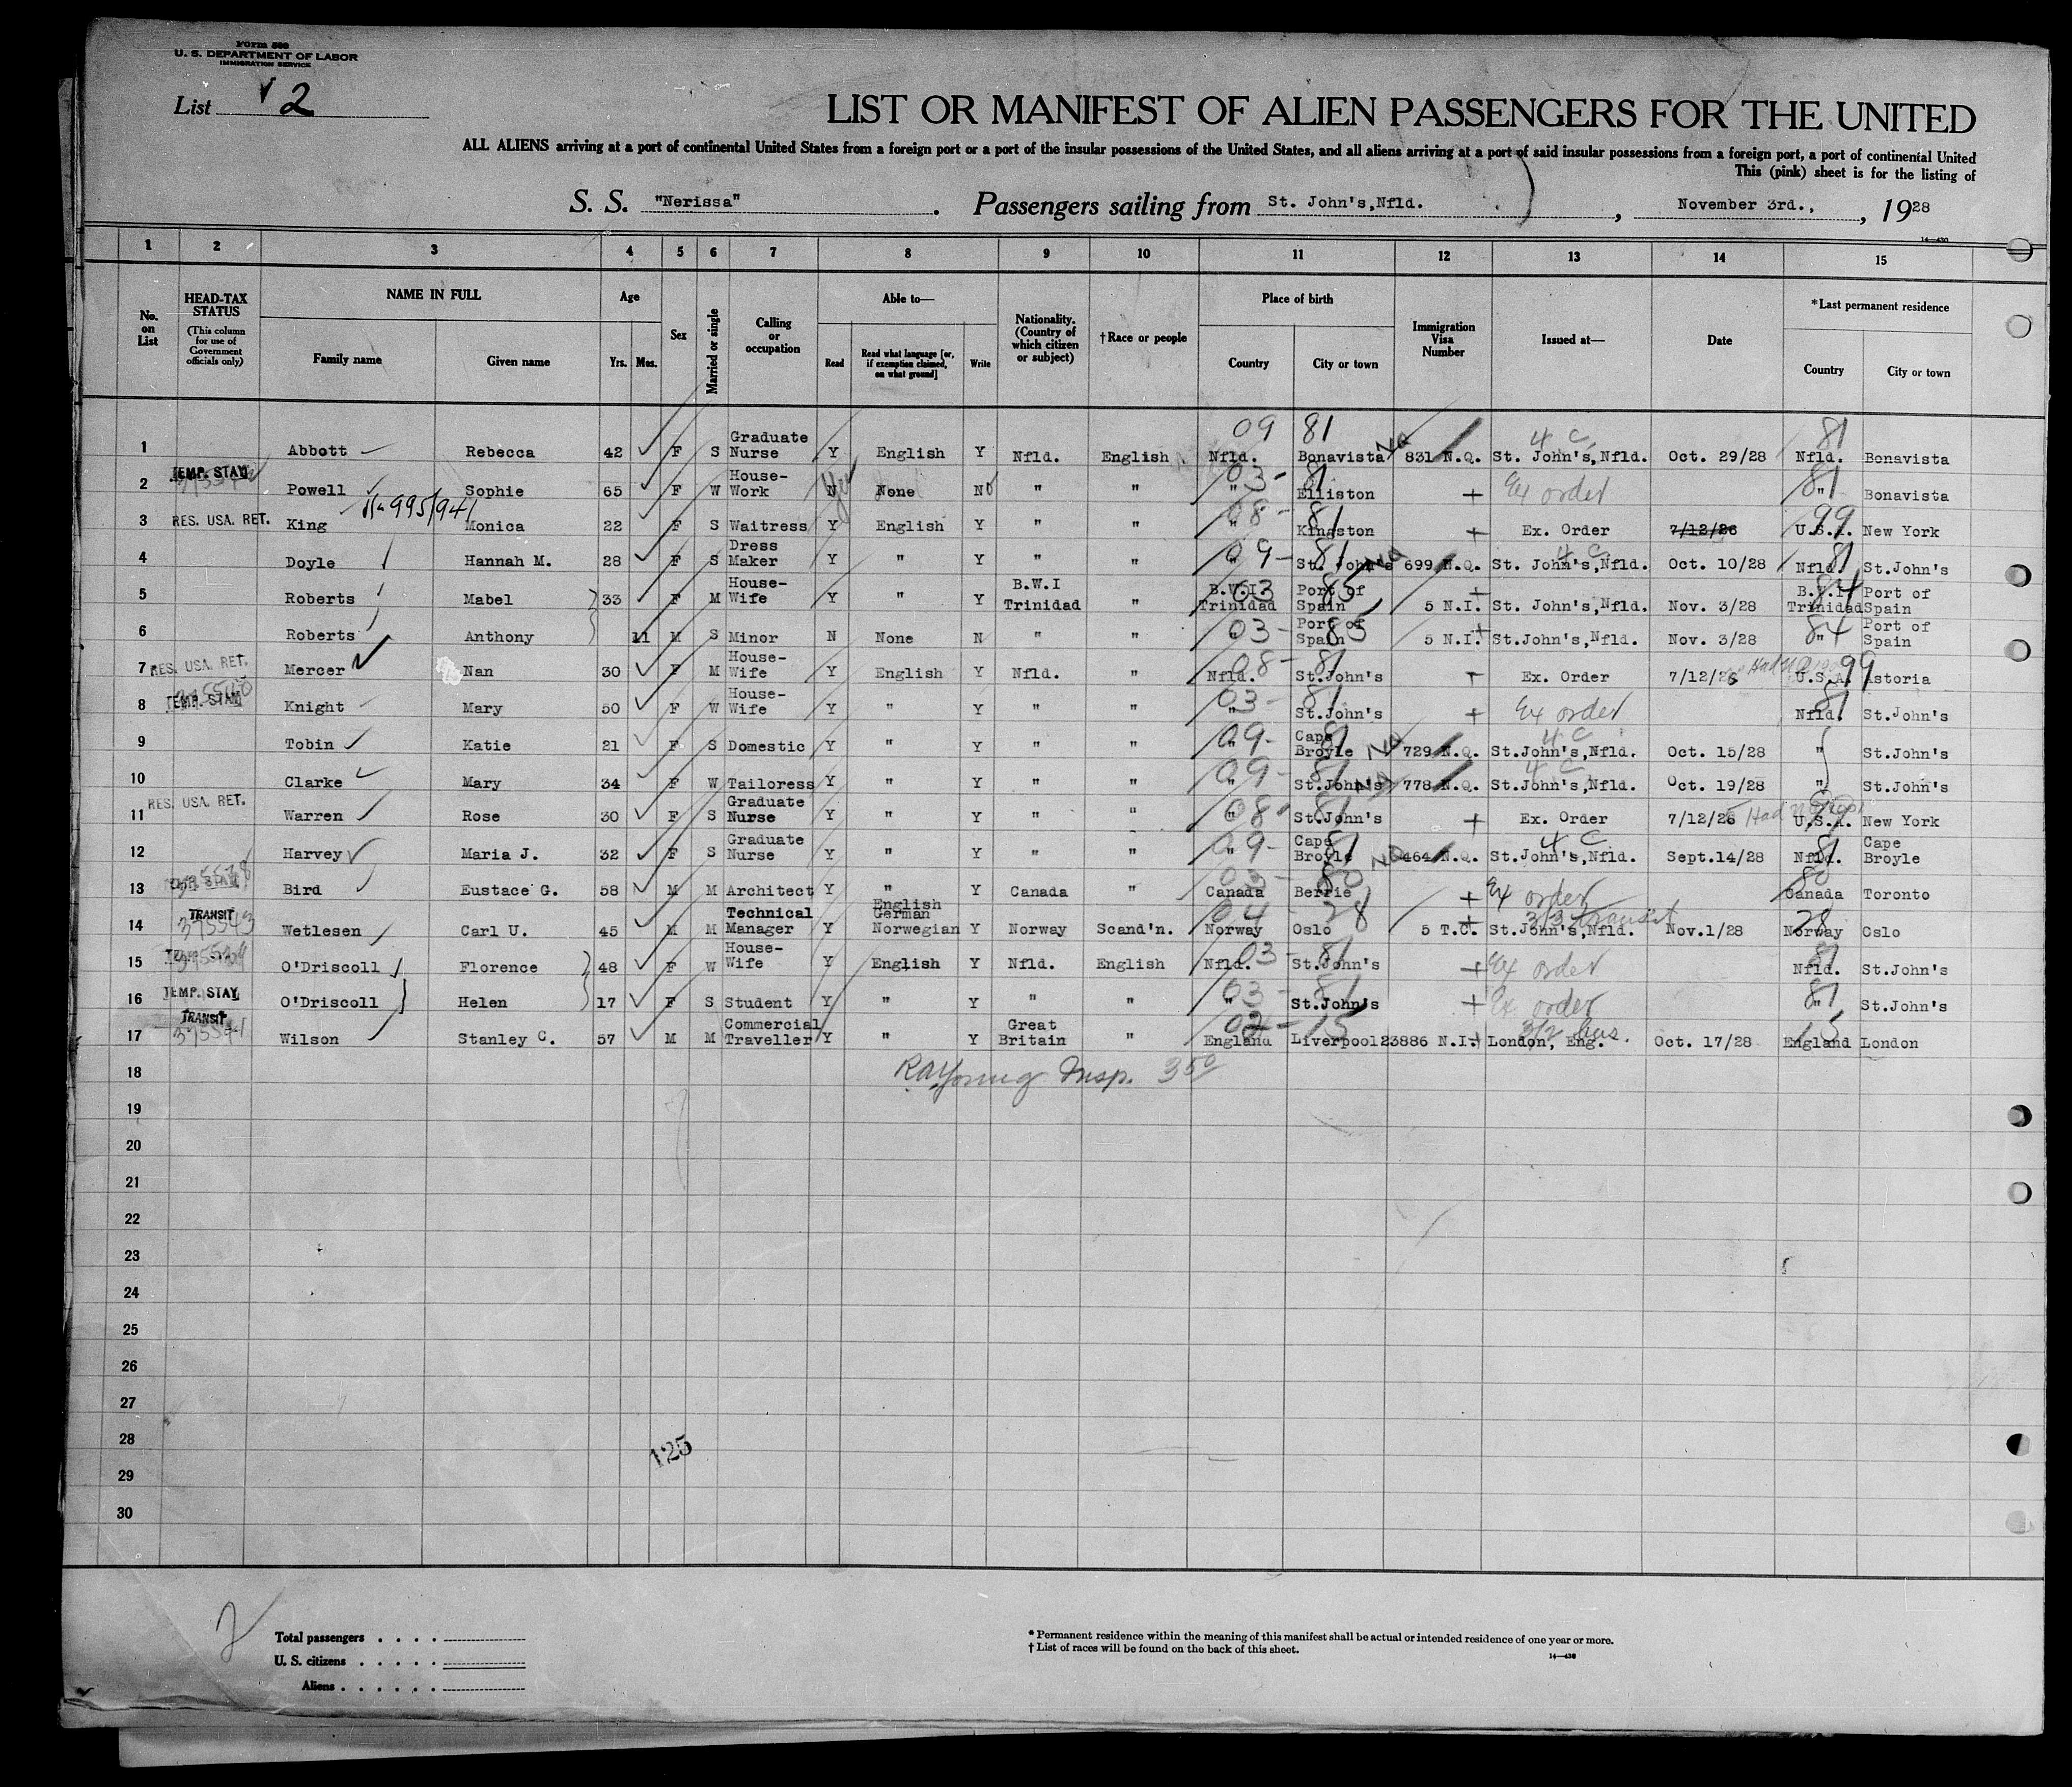 Form 500
U. S. DEPARTMENT OF LABOR
IMMIGRATION SERVICE
List 2
LIST OR MANIFEST OF ALIEN PASSENGERS FOR THE UNITED
ALL ALIENS arriving at a port of continental United States from a foreign port or a port of the insular possessions of the United States, and all aliens arriving at a port of said insular possessions from a foreign port, a port of continental United
This (pink) sheet is for the listing of
S. S. "Nerissa". Passengers sailing from St. John's,Nfld. , November 3rd., , 1928
14—430
1 2 3 4 5 6 7 8 9 10 11 12 13 14 15
No. on List HEAD-TAX STATUS (This column for use of Government officials only) NAME IN FULL Family name Given name Age Yrs. Mos. Sex Married or single Calling or occupation Able to— Read Read what language [or, if exemption claimed, on what ground] Write Nationality. (Country of which citizen or subject) †Race or people Place of birth Country City or town Immigration Visa Number Issued at— Date *Last permanent residence Country City or town
09 81 4 C 81
1 Abbott Rebecca 42 F S Graduate Nurse Y English Y Nfld. English Nfld. Bonavista 831 N.Q. St. John's,Nfld. Oct. 29/28 Nfld. Bonavista
2 TEMP. STAY Powell Sophie 65 F W House-Work N None N " " 03- " 81 Elliston + Ex order 81 " Bonavista
3 RES. USA. RET. King 995/941 Monica 22 F S Waitress Y English Y " " 08- " 81 Kingston + Ex. Order 7/12/26 99 U.S.A. New York
4 Doyle Hannah M. 28 F S Dress Maker Y " Y " " 09- " 81 St. John's 699 N.Q. 4 C St. John's,Nfld. Oct. 10/28 81 Nfld. St.John's
5 Roberts Mabel 33 F M House-Wife Y " Y B.W.I Trinidad " 03 B.W.I Trinidad 85 Port of Spain + 5 N.I. St. John's,Nfld. Nov. 3/28 84 B.W.I Trinidad Port of Spain
6 Roberts Anthony 11 M S Minor N None N " " 03- " 85 Port of Spain + 5 N.I. St.John's,Nfld. Nov. 3/28 84 " Port of Spain
7 RES. USA. RET. Mercer Nan 30 F M House-Wife Y English Y Nfld. " 08- Nfld. 81 St.John's + Ex. Order 7/12/26 99 U.S.A. Astoria
8 TEMP. STAY Knight Mary 50 F W House-Wife Y " Y " " 03- " 81 St.John's + Ex order 81 Nfld. St.John's
9 Tobin Katie 21 F S Domestic Y " Y " " 09- " 81 Cape Broyle 729 N.Q. 4 C St.John's,Nfld. Oct. 15/28 " St.John's
10 Clarke Mary 34 F W Tailoress Y " Y " " 09- " 81 St.John's 778 N.Q. 4 C St.John's,Nfld. Oct. 19/28 " St.John's
11 RES. USA. RET. Warren Rose 30 F S Graduate Nurse Y " Y " " 08- " 81 St.John's + Ex. Order 7/12/26 Had 99 U.S.A. New York
12 Harvey Maria J. 32 F S Graduate Nurse Y " Y " " 09- " 81 Cape Broyle 464 N.Q. 4 C St.John's,Nfld. Sept.14/28 81 Nfld. Cape Broyle
13 Bird Eustace G. 58 M M Architect Y " Y Canada " 03- Canada 80 Berrie + Ex order 80 Canada Toronto
14 TRANSIT 375543 Wetlesen Carl U. 45 M M Technical Manager Y English German Norwegian Y Norway Scand'n. 04- Norway 28 Oslo + 5 T.C. 3/3 transit St.John's,Nfld. Nov.1/28 28 Norway Oslo
15 O'Driscoll Florence 48 F W House-Wife Y English Y Nfld. English 03- Nfld. 81 St.John's + Ex order 81 Nfld. St.John's
16 TEMP. STAY O'Driscoll Helen 17 F S Student Y " Y " " 03- " 81 St.John's + Ex. order 81 " St.John's
17 TRANSIT 375541 Wilson Stanley C. 57 M M Commercial Traveller Y " Y Great Britain " 02- England 15 Liverpool 23886 N.I. + 3/2 bus. London, Eng. Oct. 17/28 15 England London
18 RAYoung Insp. 350
19
20
21
22
23
24
25
26
27
28
125
29
30
2
Total passengers . . . .
U. S. citizens . . . . .
Aliens . . . . . .
* Permanent residence within the meaning of this manifest shall be actual or intended residence of one year or more.
† List of races will be found on the back of this sheet.
14—430